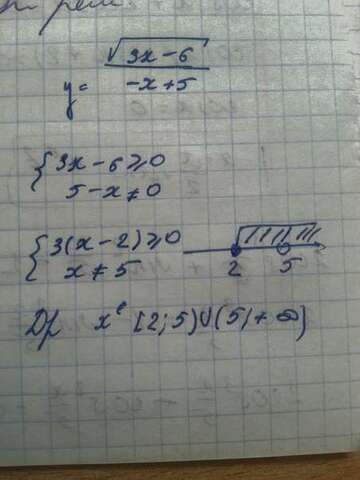 y = √(3x-6) / (-x+5)
{ 3x-6 ≥ 0
5-x ≠ 0
{ 3(x-2) ≥ 0
x ≠ 5
2 5
Др x ∈ [2;5)∪(5;+∞)